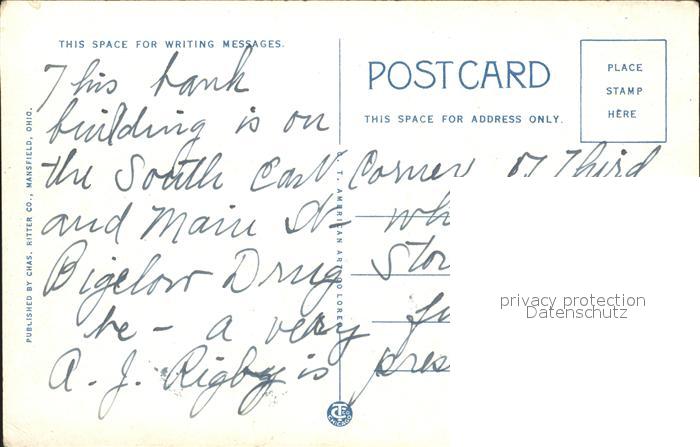 THIS SPACE FOR WRITING MESSAGES.
POST CARD
THIS SPACE FOR ADDRESS ONLY.
PLACE
STAMP
HERE
PUBLISHED BY CHAS. RITTER CO., MANSFIELD, OHIO.
C. T. AMERICAN ART COLORED
This bank
building is on
the South East Corner of Third
and Main St- wh
Bigelow Drug Stor
be - a very fi
A. J. Rigby is pres
privacy protection
Datenschutz